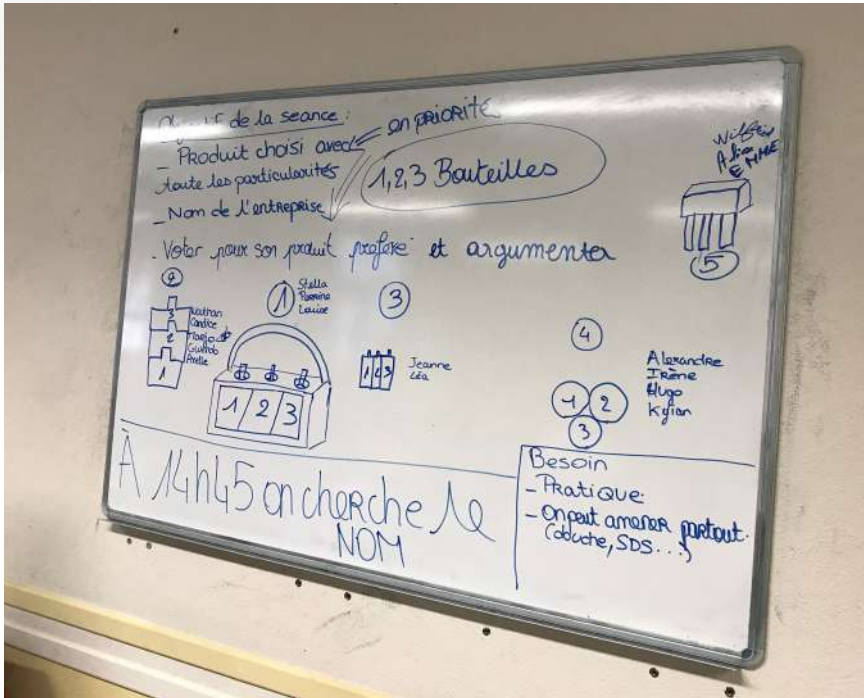 Objectif de la seance :
- Produit choisi avec
toute les particularités
- Nom de l'entreprise
en PRIORITÉ
1,2,3 Bouteilles
- Voter pour son produit préféré et argumenter
EMME
5
2
3
2
1
Nathan
Candice
Axelle
1
Stella
Perrine
Louise
1 2 3
3
1 2 3
Jeanne
Léa
4
1 2
3
Alexandre
Irène
Hugo
Kylian
À 14h45 on cherche le
NOM
Besoin
- Pratique
- On peut amener partout.
(douche, SDS...)